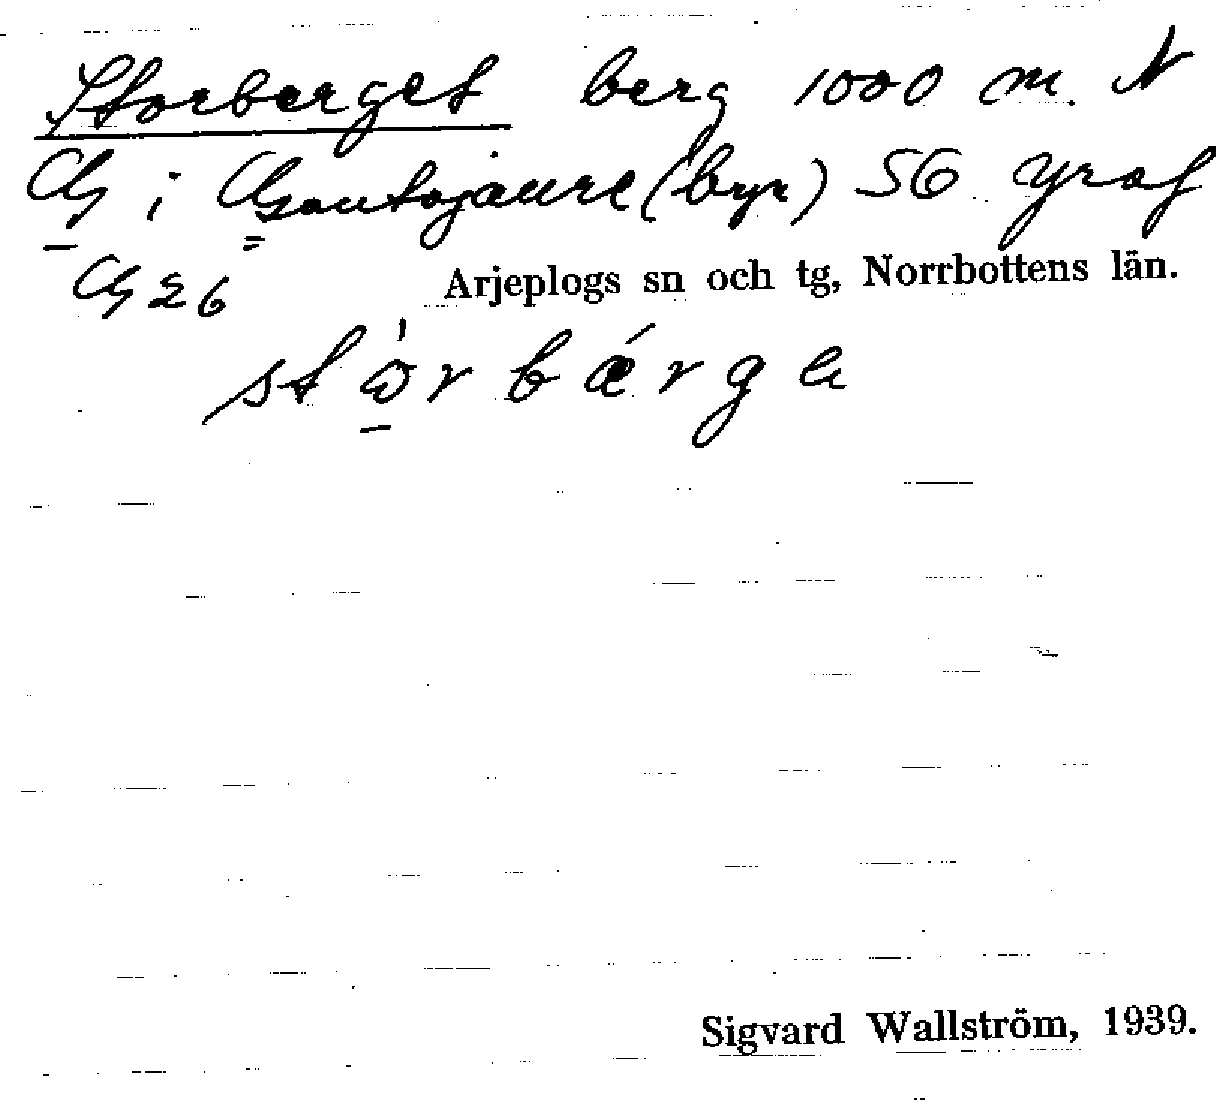 Storberget berg 1000 m. N
G i Gautojaure (byn) 56
G 26 Arjeplogs sn och tg, Norrbottens län.
Sigvard Wallström, 1939.